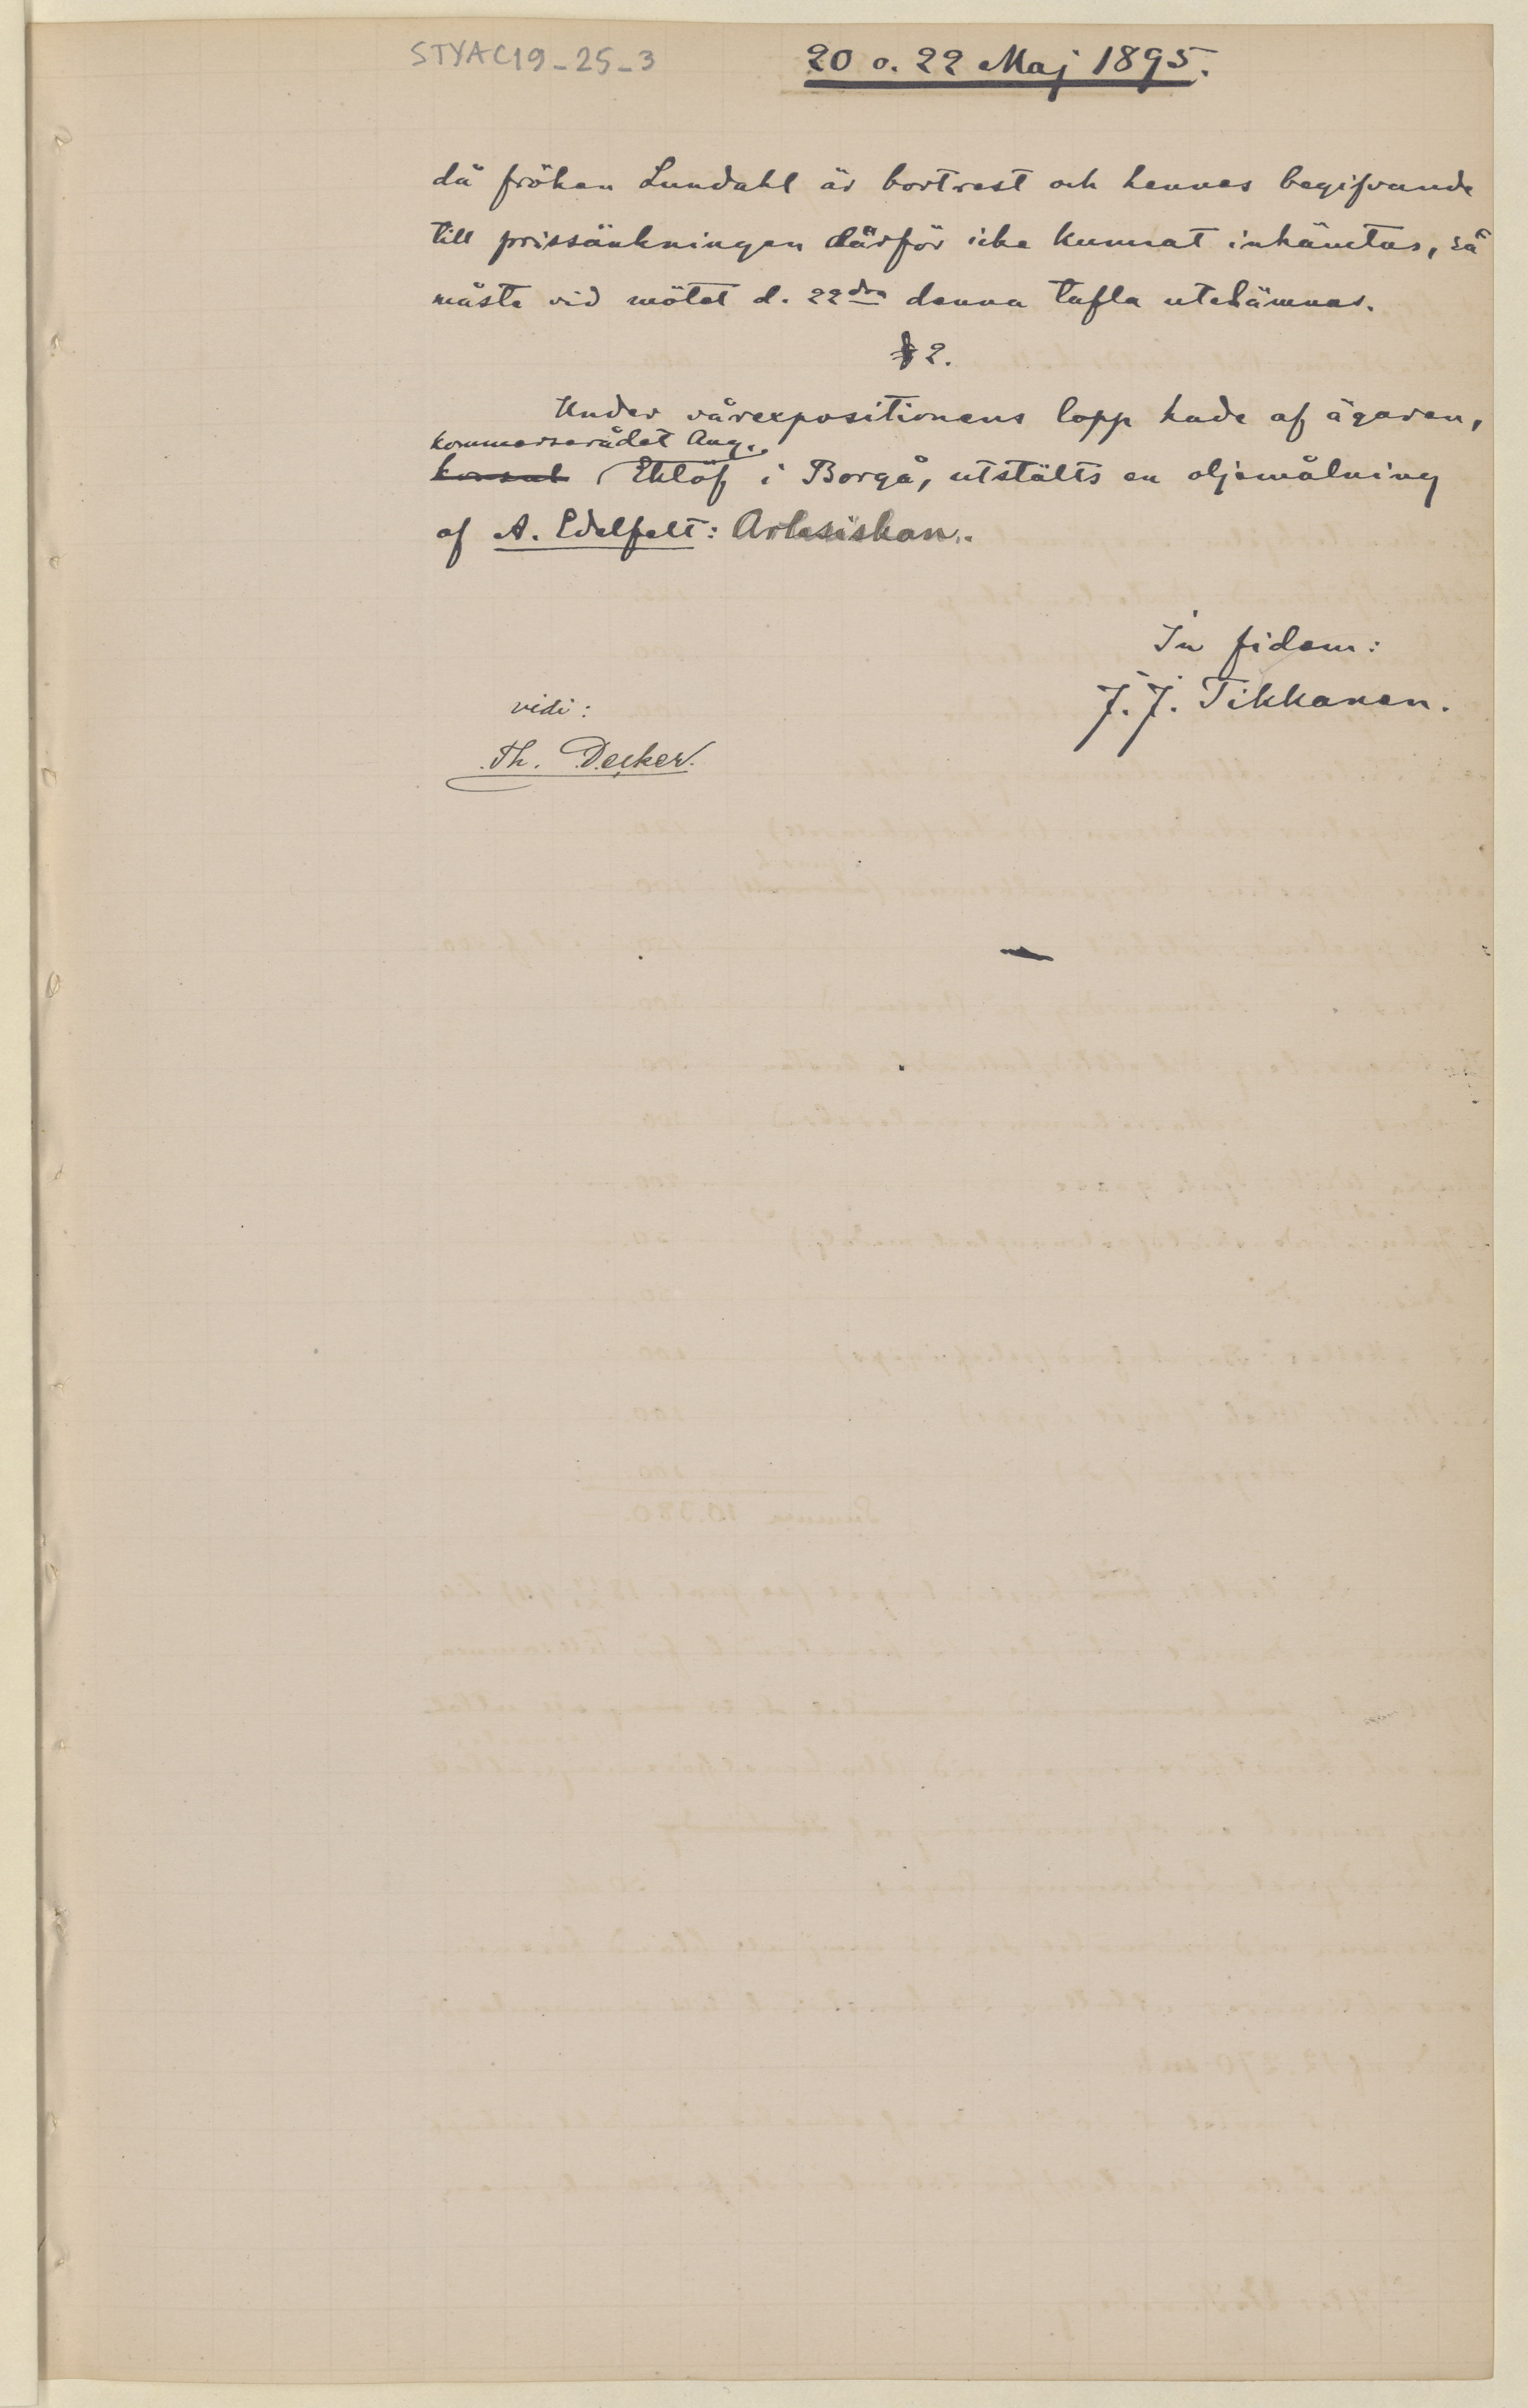 STYAC19-25-3
20 o. 22 Maj 1895.
då fröken Lundahl är bortrest och hennes begifvande
till prissänkningen därför icke kunnat inhämtas, så
måste vid mötet d. 22dra denna tafla utelämnas.
§ 2.
Under vårexpositionens lopp hade af ägaren,
kommerserådet Aug.
konsul Eklöf i Borgå, utstälts en oljemålning
af A. Edelfelt: Arlesiskan.
In fidem:
J. J. Tikkanen.
vidi:
Th. Decker.